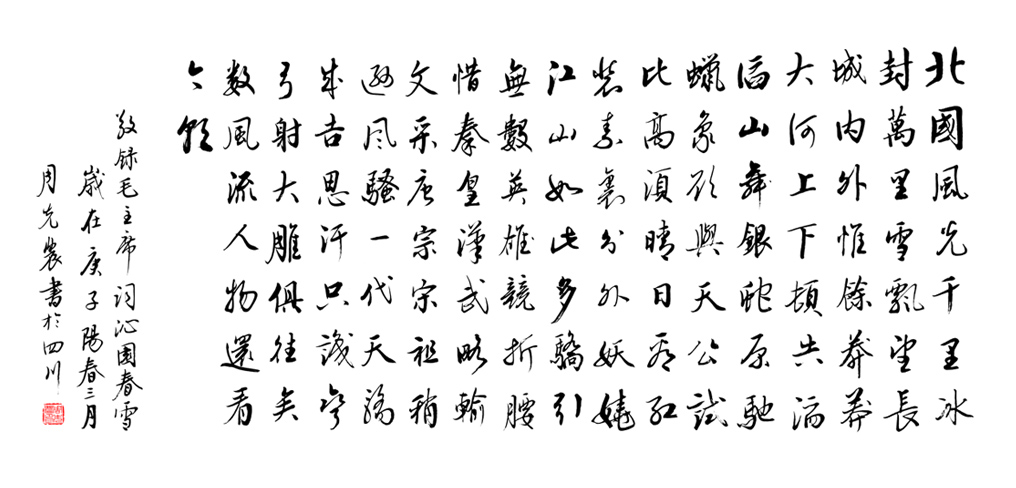 北國風光千里冰
封萬里雪飄望長
城内外惟餘莽莽
大河上下頓失滔
滔山舞銀蛇原馳
蠟象欲與天公試
比高須晴日看紅
裝素裹分外妖嬈
江山如此多驕引
無數英雄競折腰
惜秦皇漢武略輸
文采唐宗宋祖稍
遜风騷一代天驕
成吉思汗只識彎
弓射大雕俱往矣
数風流人物還看
今朝
敬録毛主席词沁園春雪
歲在庚子陽春三月
周光書於四川